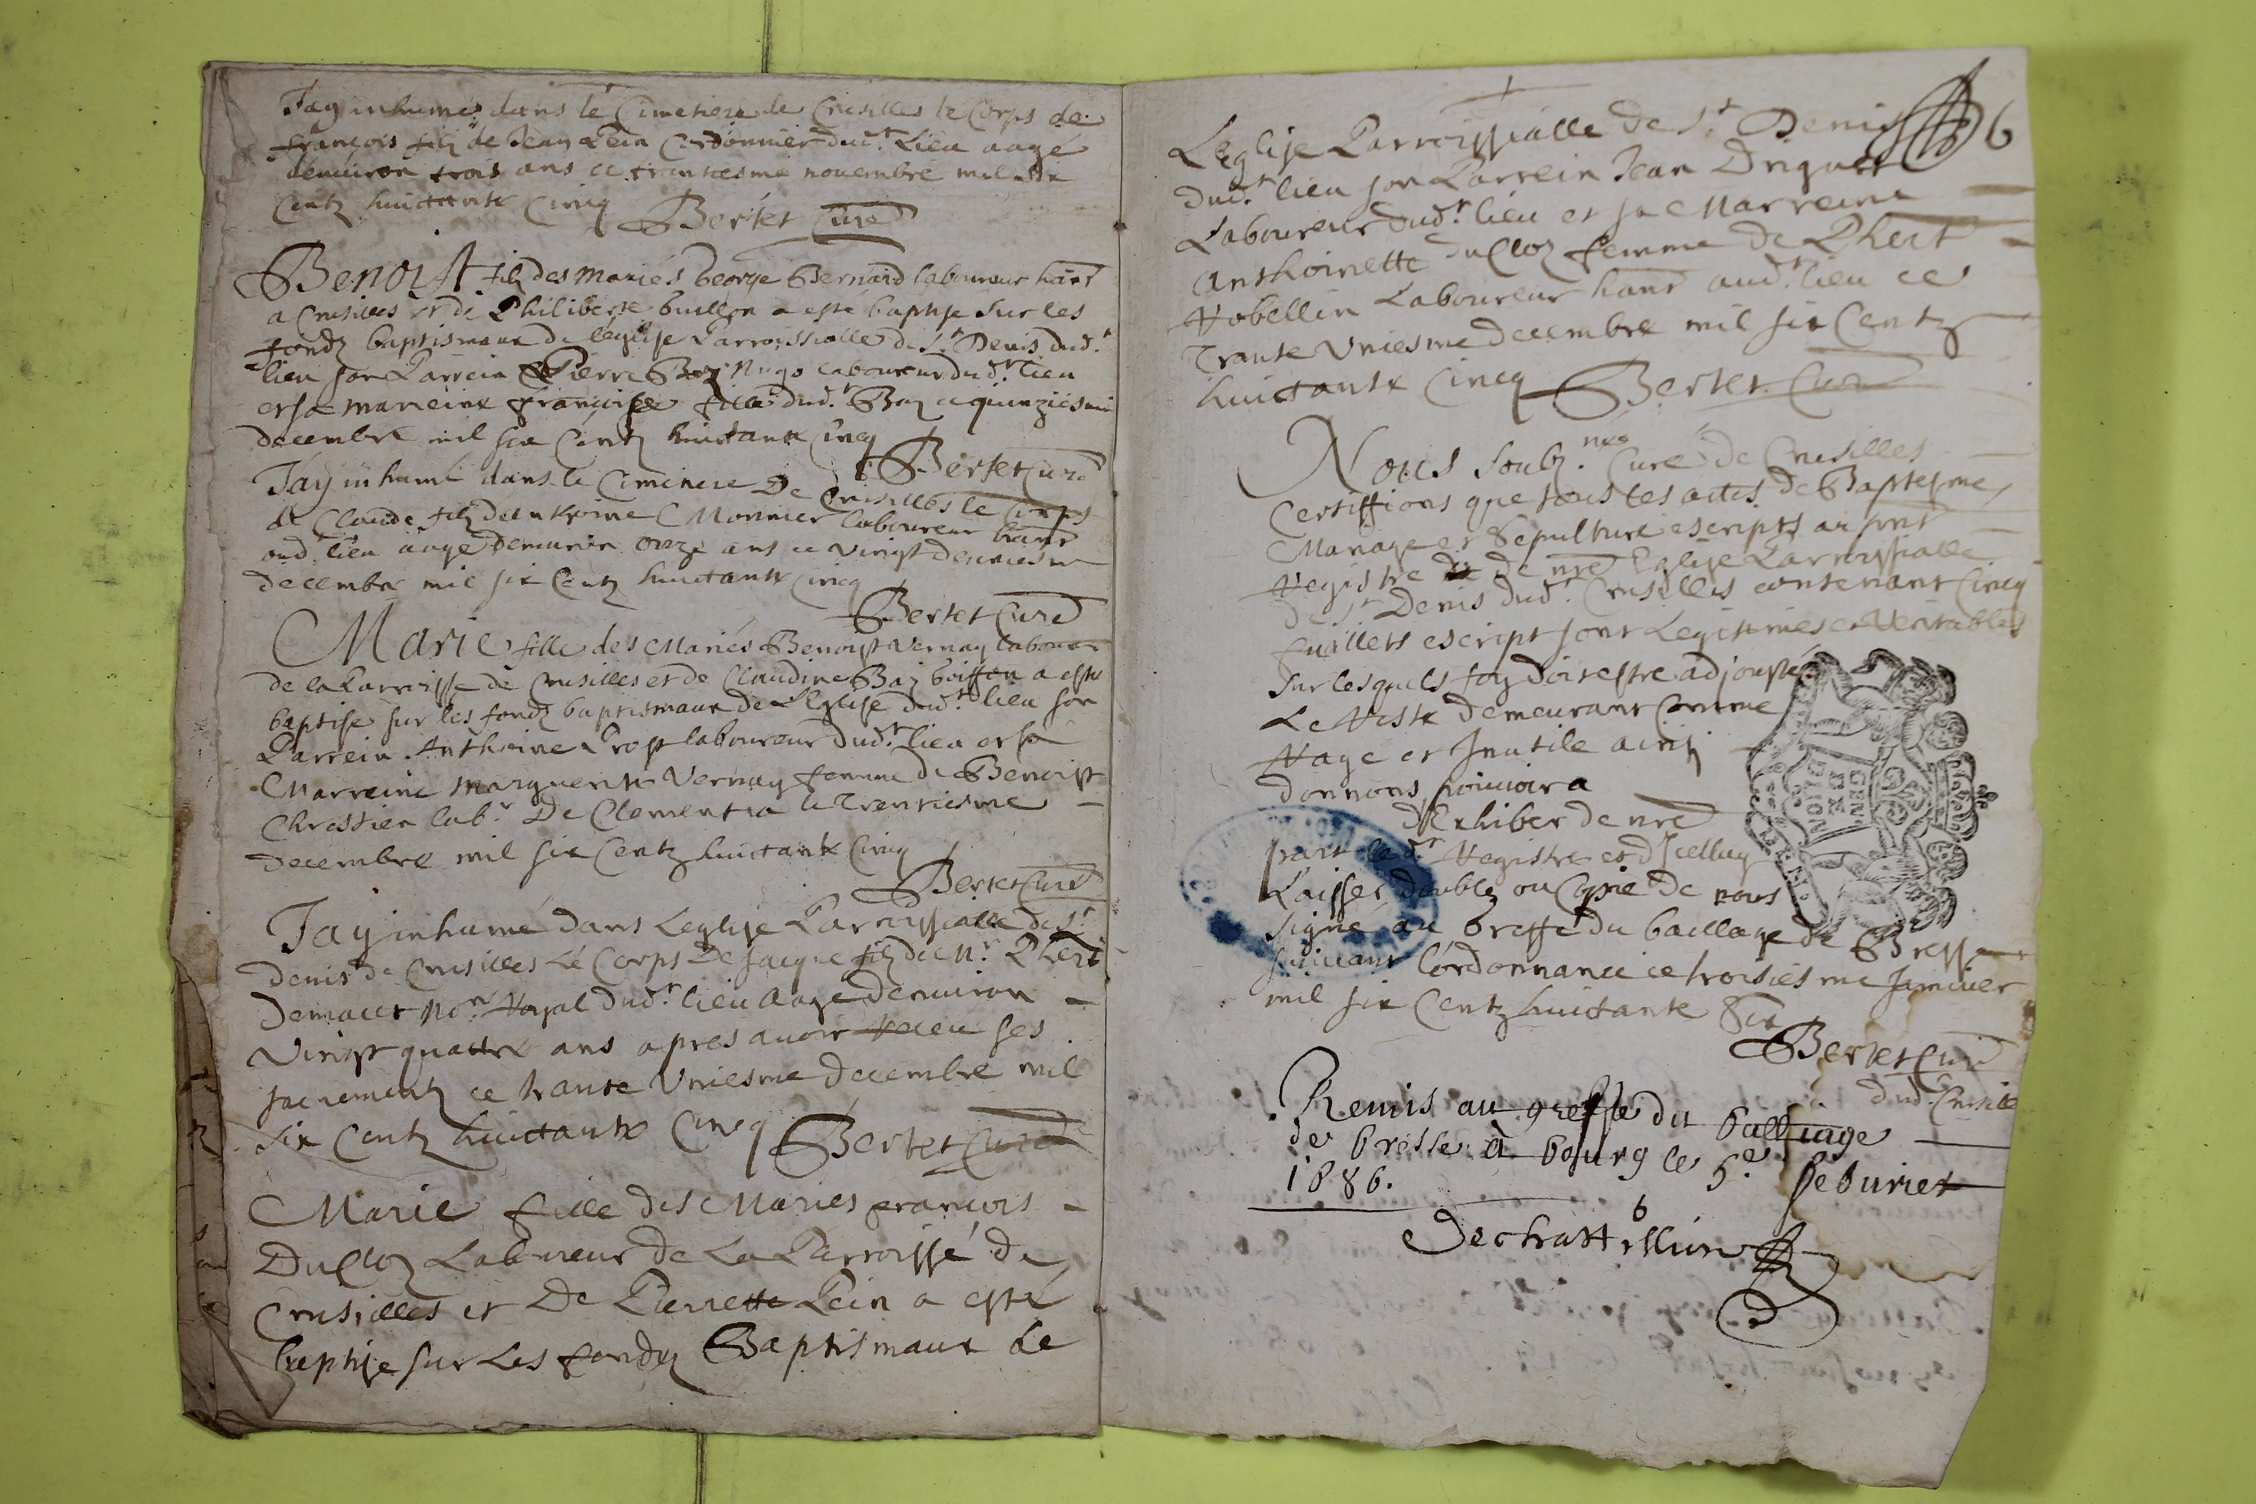 Jay inhumé dans le Cimetiere de Crusilles le Corps de
françois filz de Jean Pein Cordonnier dud.t Lieu aagé
denuiron trois ans ce trantiesme nouembre mil six
Centz huictante Cinq Bertet Curé
Benoist filz des mariés George Bernard laboureur hant
a Crusilles et de Philiberte buillon a esté baptisé sur les
fondz baptismaux de leglise Parroissialle de S.t Denis dud.t
lieu son Parrein Pierre Boz laboureur dud.t lieu
et sa marreine françoise fille dud.t Boz ce quinziesme
decembre mil six Centz huictante Cinq
Bertet Curé
Jay inhumé dans le Cimetiere De Crusilles le Corps
de Claude filz dAnthoine Monnier laboureur hant
aud. lieu aagé denuiron onze ans ce vingt deuxiesme
decembre mil six Centz huictante Cinq
Bertet Curé
Marie fille des Mariés Benoist Vernay labour
de la Parroisse de Crusilles et de Claudine Baz boisson a esté
baptisé sur les fondz baptismaux de LEglise dud.t lieu son
Parrein Anthoine Prost laboureur dud.t lieu et sa
Marreine Marguerite Vernay femme de Benoist
Chrestien lab.r De Clementia le Trentiesme
decembre mil six Centz huictante Cinq
Bertet Curé
Jay inhumé dans Leglise Parroissialle de S.t
Denis de Crusilles Le Corps De Jacque filz de M.r Phert
Demacet No.re Royal dud.t lieu Aagé denuiron
Vingt quattre ans apres auoir receu ses
sacrementz ce trante Vniesme decembre mil
six Centz huictante Cinq Bertet Curé
Marie fille des Mariés françois
DuCloz Laboureur de La Parroisse de
Crusilles et De Pierrette Pein a esté
baptisé sur Les fondz Baptismaux de
6
Leglise Parroissialle de S.t Denis
dud.t lieu son Parrein Jean
Laboureur dud.t lieu et sa Marreine
Anthoinette duCloz femme de Phert
Robellin Laboureur hant aud.t lieu ce
Trante Vniesme decembre mil six Centz
huictante Cincq Bertet Curé
Nous soubz.nes Curé de Crusilles
Certiffions que tous les actes de Baptesme,
Mariage et Sepulture escripts au sent
Registre de nre Eglise Parroissialle
de S.t Denis dud.t Crusilles contenant Cinq
fuillets escript sont Legitimes et Veritables
sur lesquels foy doit estre adjousté
Le Reste demeurant Comme
Vage et Inutile ainsi
donnons pouuoir a
dExhiber de nre
part led.t Registre et dJcelluy
Laisser double ou Copie de nous
signé au Greffe du baillage de Bresse
suiuant Lordonnance ce troisiesme Januier
mil six Centz huictante Six
Bertet Curé
dud.t Crusille
GEN
DE
DIION
Remis au greffe du balliage
de bresse à bourg le 5.e feburier
1686.
Dechattillion